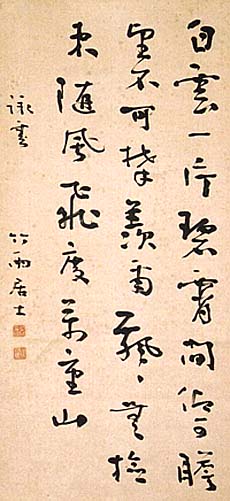 白雲一片碧霄間仰可瞻
望不可攀羨爾飄〻無撿
束随風飛度萬重山
詠雲　竹雨居士